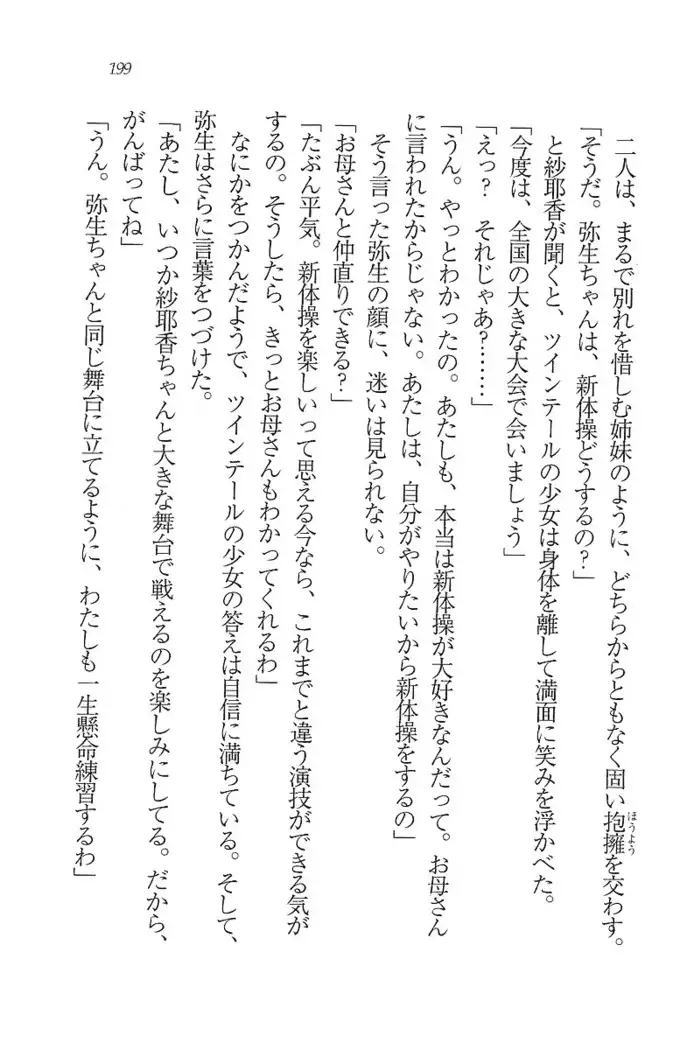 199
二人は、まるで別れを惜しむ姉妹のように、どちらからともなく固い抱擁を交わす。
ほうよう
「そうだ。弥生ちゃんは、新体操どうするの？」
と紗耶香が聞くと、ツインテールの少女は身体を離して満面に笑みを浮かべた。
「今度は、全国の大きな大会で会いましょう」
「えっ？　それじゃあ？……」
「うん。やっとわかったの。あたしも、本当は新体操が大好きなんだって。お母さん
に言われたからじゃない。あたしは、自分がやりたいから新体操をするの」
そう言った弥生の顔に、迷いは見られない。
「お母さんと仲直りできる？」
「たぶん平気。新体操を楽しいって思える今なら、これまでと違う演技ができる気が
するの。そうしたら、きっとお母さんもわかってくれるわ」
なにかをつかんだようで、ツインテールの少女の答えは自信に満ちている。そして、
弥生はさらに言葉をつづけた。
「あたし、いつか紗耶香ちゃんと大きな舞台で戦えるのを楽しみにしてる。だから、
がんばってね」
「うん。弥生ちゃんと同じ舞台に立てるように、わたしも一生懸命練習するわ」